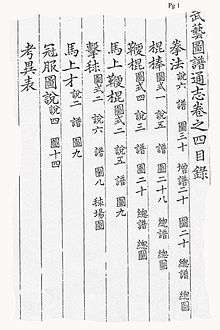 Pg 1
武藝圖譜通志卷之四目錄
拳法 說六 譜 圖三十 增譜二十 圖二十 總譜 總圖
棍棒 圖式一 說五 譜 圖二十 總譜 總圖
鞭棍 圖式四 說三 譜 圖二十 總譜 總圖
馬上鞭棍 圖式二 說五 譜 圖九
擊毬 圖式二 說六 譜 圖八 毬場圖
馬上才 說二 譜 圖九
冠服圖說 說四 圖十四
考異表